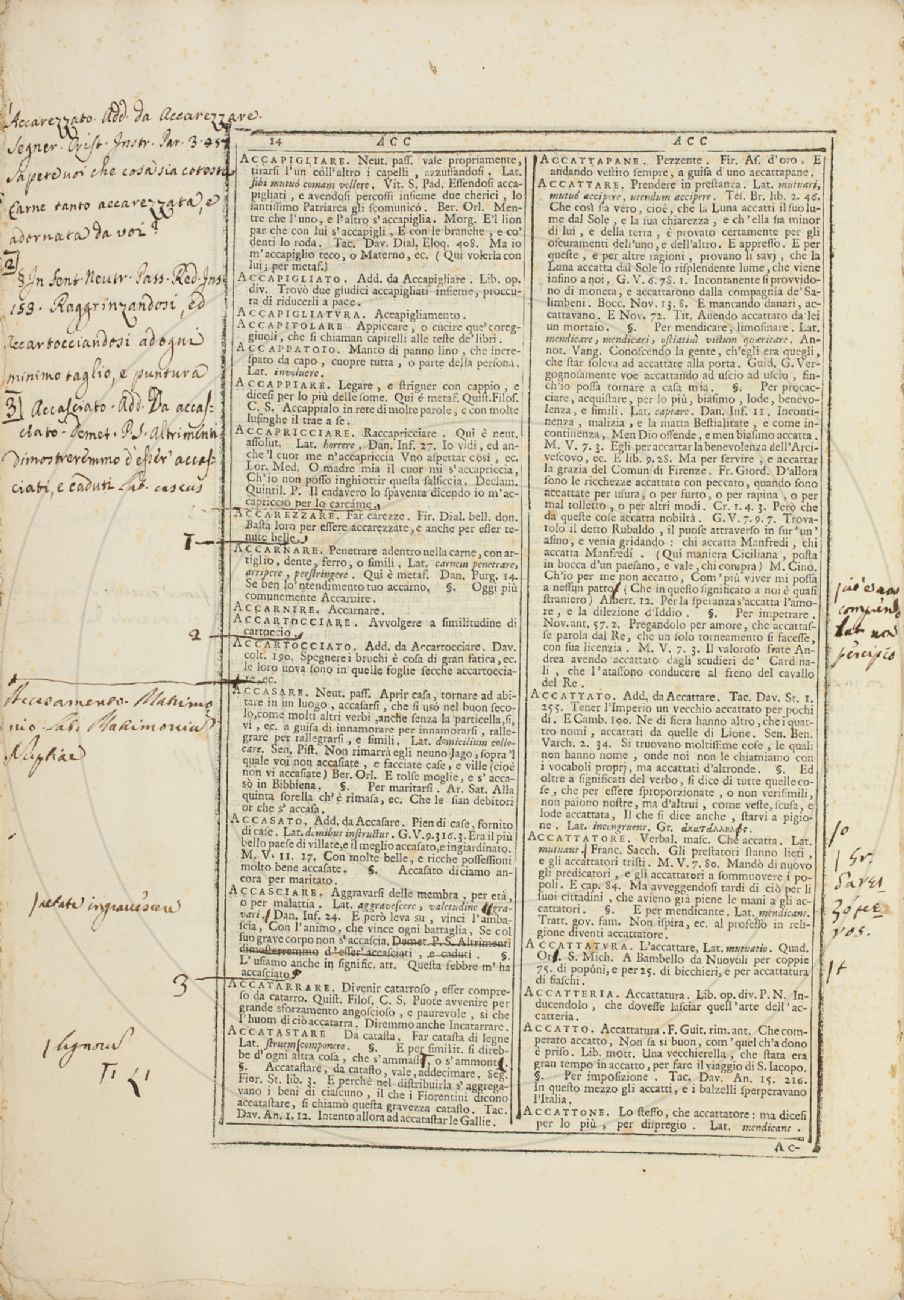 Accarezzato. Add. da Accarezzare.
Segner. Crist. Instr. Par. 3. 
Sapete voi che cosa sia cotesta
Carne tanto accarezzata, e
adornata da voi?
2
§ In sent. Neutr. Pass. Red. Ins.
153. Raggrinzandosi, ed
accartocciandosi ad ogni
minimo taglio, e puntura
3 Accasciato. Add. Da accas-
ciato. Demet. P. S. Altrimenti
dimostreremmo d'esser accas-
ciati, e caduti Lat.
1
2
Accasamento. Matrimo
nio. Lat. Matrimonium
Nuptiae
aetate ingravescere
3
lignorum
14 ACC
ACCAPIGLIARE. Neut. pass. vale propriamente,
tirarsi l'un coll'altro i capelli, azzuffandosi. Lat.
sibi mutuò comam vellere. Vit. S. Pad. Essendosi acca-
pigliati, e avendosi percossi insieme due cherici, lo
santissimo Patriarca gli scomunicò. Ber. Orl. Men-
tre che l'uno, e l'altro s'accapiglia. Morg. E'l lion
par che con lui s'accapigli, E con le branche, e co'
denti lo roda. Tac. Dav. Dial. Eloq. 408. Ma io
m'accapiglio teco, o Materno, ec. (Qui volerla con
lui; per metaf.)
ACCAPIGLIATO. Add. da Accapigliare. Lib. op.
div. Trovò due giudici accapigliati insieme, proccu-
ra di riducerli a pace.
ACCAPIGLIATVRA. Accapigliamento.
ACCAPITOLARE. Appiccare, o cucire que' coreg-
giuoli, che si chiaman capitelli alle teste de' libri.
ACCAPPATOTO. Manto di panno lino, che incre-
spato da capo, cuopre tutta, o parte della persona.
Lat. involucre.
ACCAPPIARE. Legare, e strigner con cappio, e
dicesi per lo più delle some. Qui è metaf. Quist. Filos.
C. S. Accappialo in rete di molte parole, e con molte
lusinghe il trae a se.
ACCAPRICCIARE. Raccapricciare. Qui è neut.
assolut. Lat. horrere. Dan. Inf. 27. Io vidi, ed an-
che 'l cuor me n'accapriccia Vno aspettar così, ec.
Lor. Med. O madre mia il cuor mi s'accapriccia,
Ch'io non posso inghiottir questa salsiccia. Declam.
Quintil. P. Il cadavero lo spaventa dicendo io m'ac-
capriccio per lo carcame.
ACCAREZZARE. Far carezze. Fir. Dial. bell. don.
Basta loro per essere accarezzate, e anche per esser te-
nute belle.
ACCARNARE. Penetrare adentro nella carne, con ar-
tiglio, dente, ferro, o simili. Lat. carnem penetrare,
arripere, perstringere. Qui è metaf. Dan. Purg. 14.
Se ben lo 'ntendimento tuo accarno, §. Oggi più
comunemente Accarnire.
ACCARNIRE. Accarnare.
ACCARTOCCIARE. Avvolgere a similitudine di
cartoccio.
ACCARTOCCIATO. Add. da Accartocciare. Dav.
colt. 190. Spegnere i bruchi è cosa di gran fatica, ec.
le loro uova sono in quelle foglie secche accartoccia-
te, ec.
ACCASARE. Neut. pass. Aprir casa, tornare ad abi-
tare in un luogo, accasarsi, che si usò nel buon seco-
lo, come molti altri verbi, anche senza la particella, si,
vi, ec. a guisa di innamorare per innamorarsi, ralle-
grare per rallegrarsi, e simili. Lat. domicilium collo-
care. Sen. Pist. Non rimarrà egli neuno lago, sopra 'l
quale voi non accasiate, e facciate case, e ville (cioè
non vi accasiate) Ber. Orl. E tolse moglie, e s'acca-
sò in Bibbiena. §. Per maritarsi. Ar. Sat. Alla
quinta sorella ch'è rimasa, ec. Che le sian debitori
or che s'accasa.
ACCASATO. Add. da Accasare. Pien di case, fornito
di case. Lat. domibus instructus. G. V. 9. 316. 3. Era il più
bello paese di villate, e il meglio accasato, e ingiardinato.
M. V. 11. 17. Con molte belle, e ricche possessioni
molto bene accasate. §. Accasato diciamo an-
cora per maritato.
ACCASCIARE. Aggravarsi delle membra, per età,
o per malattia. Lat. aggravescere, valetudine gra-
vari. Dan. Inf. 24. E però leva su, vinci l'amba-
scia, Con l'animo, che vince ogni battaglia, Se col
suo grave corpo non s'accascia. Demet. P. S. Altrimenti
dimosterremmo d'esser' accasciati, e caduti. §.
L'usiamo anche in signific. att. Questa febbre m'ha
accasciato.
ACCATARRARE. Divenir catarroso, esser compre-
so da catarro. Quist. Filos. C. S. Puote avvenire per
grande sforzamento angoscioso, e paurevole, si che
l'huom di ciò accatarra. Diremmo anche Incatarrare.
ACCATASTARE Da catasta. Far catasta di legne
Lat. struem componere. §. E per similit. si direb-
be d'ogni altra cosa, che s'ammassi, o s'ammonti.
§. Accatastare, da catasto, vale, addecimare. Seg.
Fior. St. lib. 3. E perchè nel distribuirla s'aggrega-
vano i beni di ciascuno, il che i Fiorentini dicono
accatastare, si chiamò questa gravezza catasto. Tac.
Dav. An. 1. 12. Intento allora ad accatastar le Gallie.
ACC
ACCATTAPANE. Pezzente. Fir. As. d'oro. E
andando vestito sempre, a guisa d'uno accattapane.
ACCATTARE. Prendere in prestanza. Lat. mutuari,
mutuò accipere, utendum accipere. Tes. Br. lib. 2. 46.
Che così sia vero, cioè, che la Luna accatti il suo lu-
me dal Sole, e la sua chiarezza, e ch'ella sia minor
di lui, e della terra, è provato certamente per gli
oscuramenti dell'uno, e dell'altro. E appresso. E per
queste, e per altre ragioni, provano li savj, che la
Luna accatta dal Sole lo risplendente lume, che viene
insino a noi. G. V. 6. 78. 1. Incontanente si provvido-
no di moneta, e accattarono dalla compagnia de' Sa-
limbeni. Bocc. Nov. 13. 8. E mancando danari, ac-
cattavano. E Nov. 72. Tit. Avendo accattato da lei
un mortaio. §. Per mendicare, limosinare. Lat.
mendicare, mendicari, ostiatim victum quaeritare. An-
not. Vang. Conoscendo la gente, ch'egli era quegli,
che star soleva ad accattare alla porta. Guid. G. Ver-
gognosamente voe accattando ad uscio ad uscio, fin-
ch'io possa tornare a casa mia. §. Per procac-
ciare, acquistare, per lo più, biasimo, lode, benevo-
lenza, e simili. Lat. captare. Dan. Inf. 11. Inconti-
nenza, malizia, e la matta Bestialitate, e come in-
continenza, Men Dio offende, e men biasimo accatta.
M. V. 7. 3. Egli per accattar la benevolenza dell'Arci-
vescovo, ec. E lib. 9. 28. Ma per servire, e accattar
la grazia del Comun di Firenze. Fr. Giord. D'allora
sono le ricchezze accattate con peccato, quando sono
accattate per usura, o per furto, o per rapina, o per
mal tolletto, o per altri modi. Cr. 1. 4. 3. Però che
da queste cose accatta nobiltà. G. V. 7. 9. 7. Trova-
tolo il detto Rubaldo, il puose attraverso in sur 'un'
asino, e venia gridando: chi accatta Manfredi, chi
accatta Manfredi. (Qui maniera Ciciliana, posta
in bocca d'un paesano, e vale, chi compra) M. Cino.
Ch'io per me non accatto, Com' più viver mi possa
a nessun patto (Che in questo significato a noi è quasi
straniero) Albert. 12. Per la speranza s'accatta l'amo-
re, e la dilezion d'Iddio. §. Per impetrare.
Nov. ant. 57. 2. Pregandolo per amore, che accattas-
se parola dal Re, che un solo torneamento si facesse,
con sua licenzia. M. V. 7. 3. Il valoroso frate An-
drea avendo accattato dagli scudieri de' Cardina-
li, che l'atassono conducere al fieno del cavallo
del Re.
ACCATTATO. Add. da Accattare. Tac. Dav. St. 1.
255. Tener l'Imperio un vecchio accattato per pochi
dì. E Camb. 100. Ne di fiera hanno altro, che i quat-
tro nomi, accattati da quelle di Lione. Sen. Ben.
Varch. 2. 34. Si truovano moltissime cose, le quali
non hanno nome, onde noi non le chiamiamo con
i vocaboli proprj, ma accattati d'altronde. §. Ed
oltre a significati del verbo, si dice di tutte quelle co-
se, che per essere sproporzionate, o non verisimili,
non paiono nostre, ma d'altrui, come veste, scusa, e
lode accattata, Il che si dice anche, starvi a pigio-
ne. Lat. incongruens. Gr.
ACCATTATORE. Verbal. masc. Che accatta. Lat.
mutuans. Franc. Sacch. Gli prestatori stanno lieti,
e gli accattatori tristi. M. V. 7. 80. Mandò di nuovo
gli predicatori, e gli accattatori a sommuovere i po-
poli. E cap. 84. Ma avveggendosi tardi di ciò per li
suoi cittadini, che avieno già piene le mani a gli ac-
cattatori. §. E per mendicante. Lat. mendicans.
Tratt. gov. fam. Non ispira, ec. al professo in reli-
gione diventi accattatore.
ACCATTATVRA. L'accattare, Lat. mutuatio. Quad.
Or. S. Mich. A Bambello da Nuovoli per coppie
75. di popóni, e per 25. di bicchieri, e per accattatura
di fiaschi.
ACCATTERIA. Accattatura. Lib. op. div. P. N. In-
ducendolo, che dovesse lasciar quell'arte dell'ac-
catteria.
ACCATTO. Accattatura. F. Guit. rim. ant. Che com-
perato accatto, Non sa sì buon, com'quel ch'a dono
è priso. Lib. mott. Una vecchierella, che stata era
gran tempo in accatto, per fare il viaggio di S. Iacopo.
§. Per imposizione. Tac. Dav. An. 15. 216.
In questo mezzo gli accatti, e i balzelli sperperavano
l'Italia.
ACCATTONE. Lo stesso, che accattatore: ma dicesi
per lo più, per dispregio. Lat. mendicans.
AC-
Gr.
δανει
ζόμε
νος.